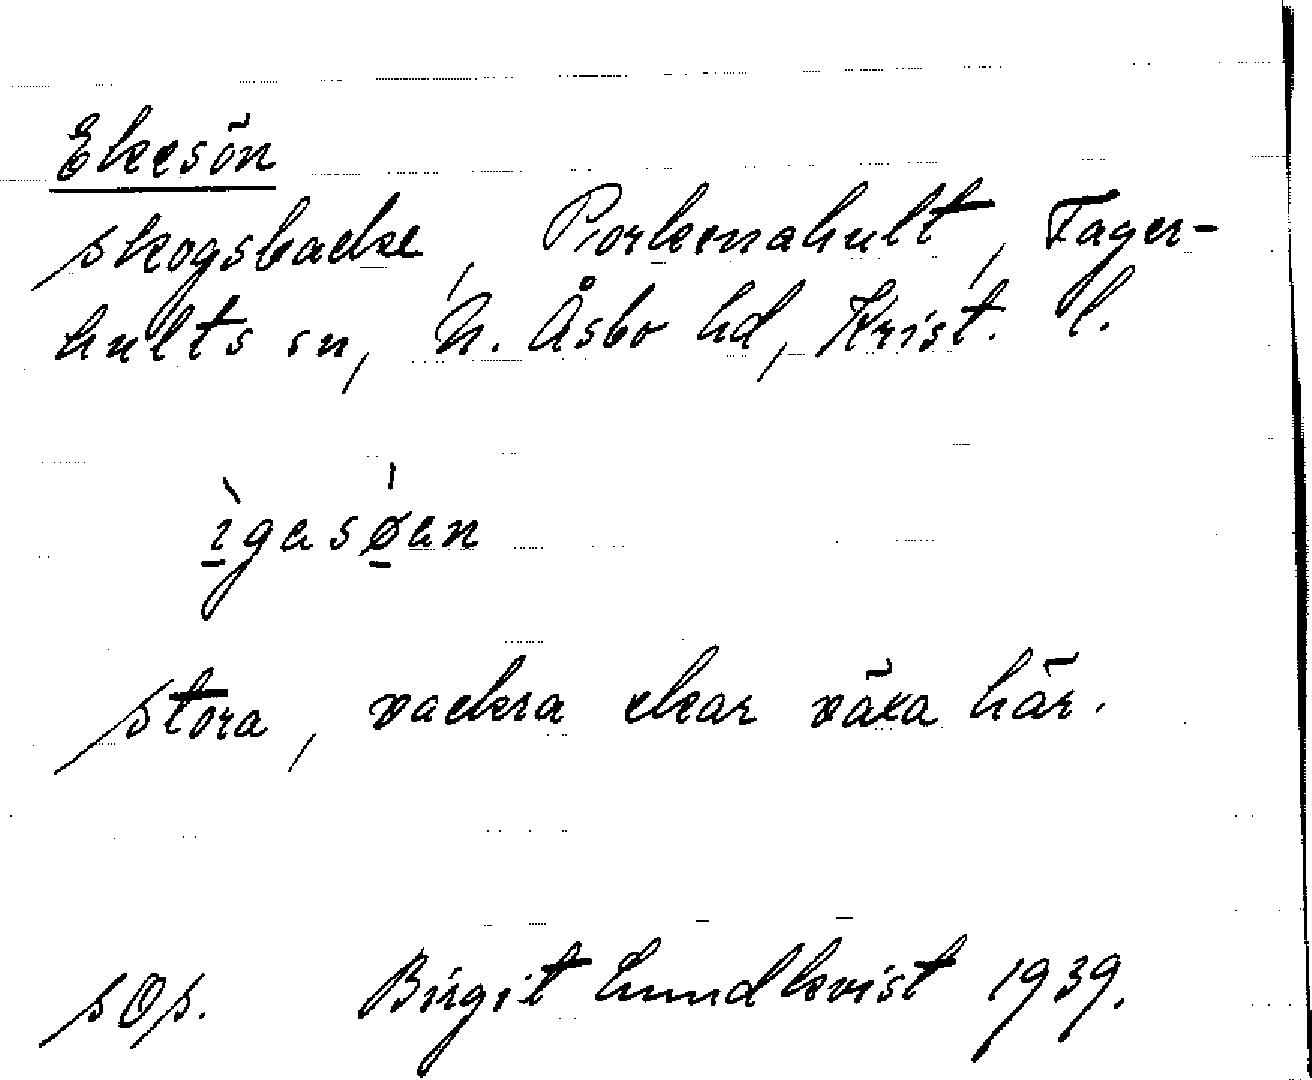 Ekesön
skogsbacke, Porkenahult, Fager-
hults sn, N. Åsbo hd, Krist. l.
ìgasø̱an
stora, vackra ekar växa här.
sOp. Birgit Lundkvist 1939.